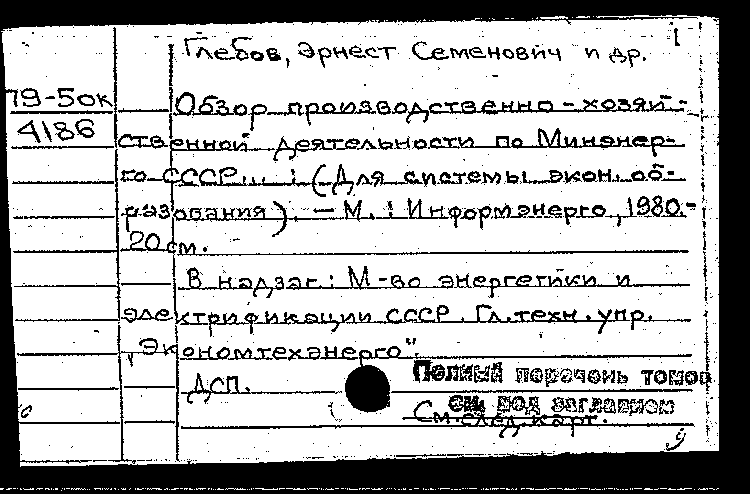 1
Глебов, Эрнест Семенович и др.
П9-5ок
4186
Обзор производственно-хозяй-
ственной деятельности по Минэнер-
го СССР... : (Для системы экон. об-
разования). — М. : Информэнерго, 1980.-
20 см.
В надзаг.: М-во энергетики и
электрификации СССР. Гл. техн. упр.
„Экономтехэнерго".
ДСП.
Полный перечень томов
см. под заглавием
См. след. карт.